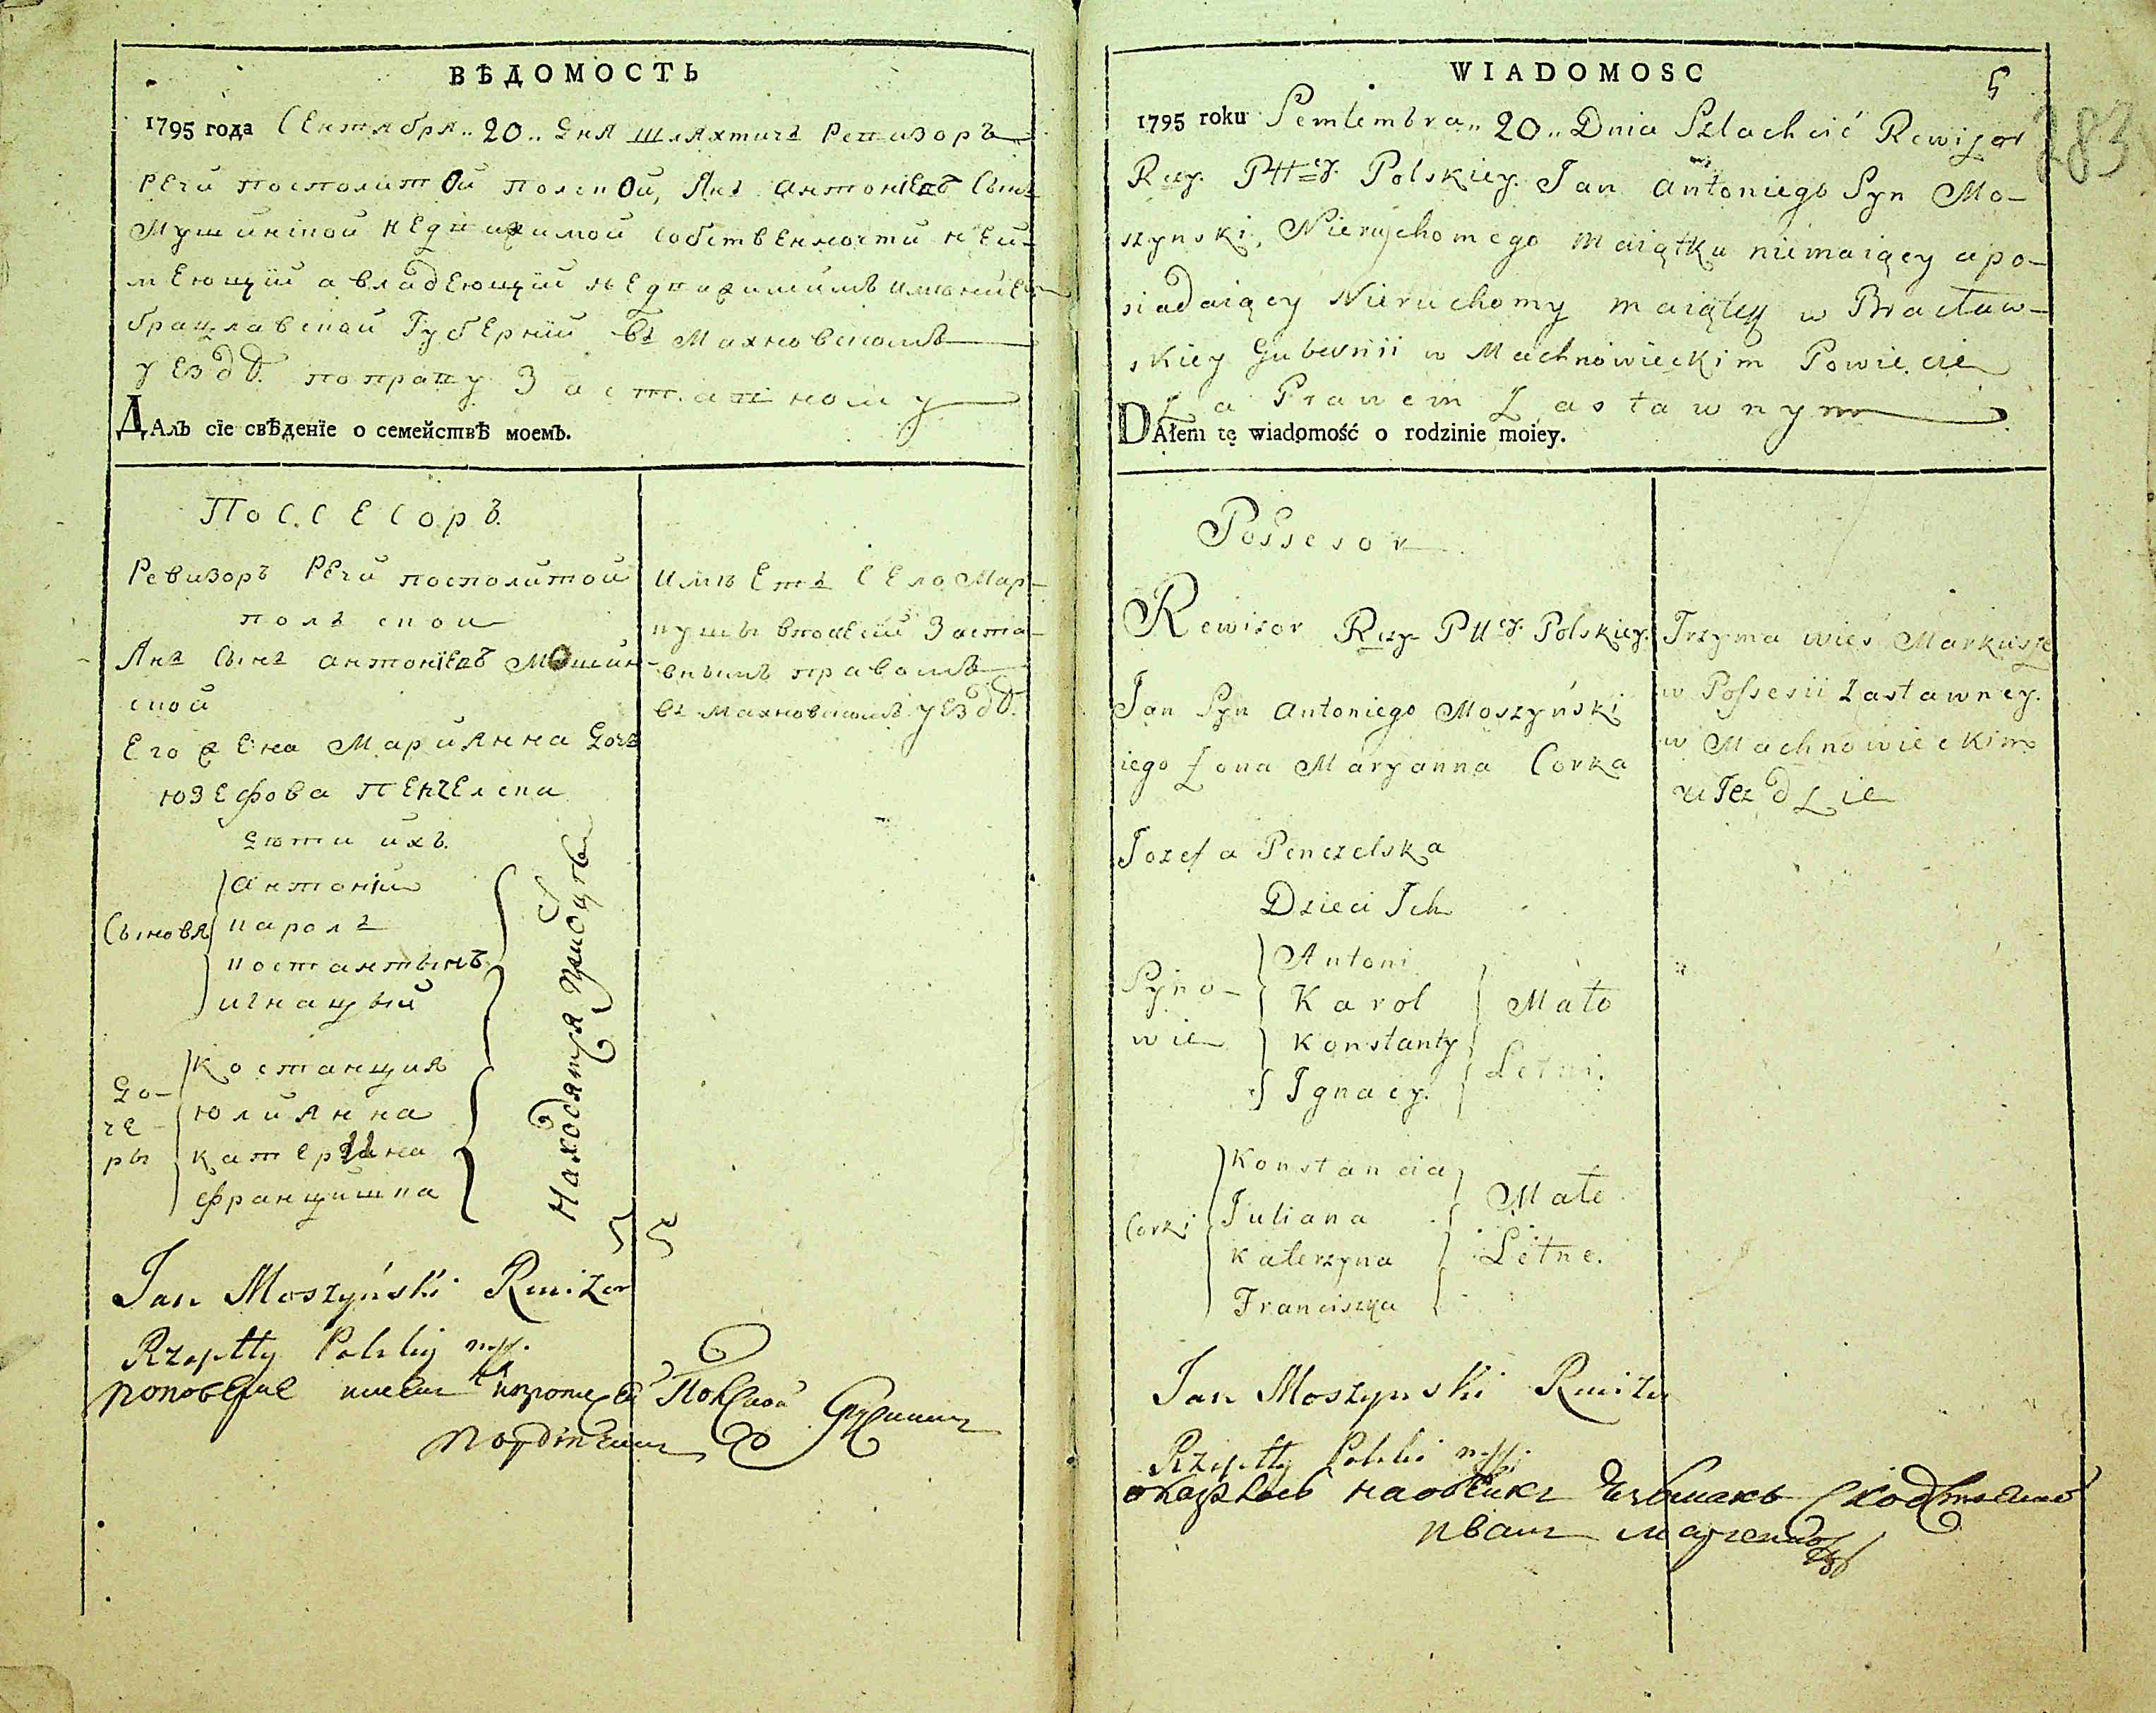 ВѢДОМОСТЬ
1795 года Сентября 20 дня шляхтичъ Ревизоръ
Речи посполитой полской, Янъ антоніевъ Сынъ
Мушинской недвижимой собственности неи-
меющій а владеющій недвижимимъ имѣніемъ
брацлавской Губерніи въ Махновскомъ
уездѣ. поправу Заставному
ДАлЪ сїе свѣденїе о семействѣ моемЪ.
Поссесоръ.
Ревизоръ Речи посполитой
полъской
Янъ Сынъ антоніевъ Мошин-
ской
Его жена Марианна дочъ
юзефова Пенчелска
дѣти ихъ.
Сыновя
антоній
кароль
костантынъ
игнацый
до-
че-
ры
Костанция
юлиянна
катерина
францишка
Находятця
имѣетъ село Мар-
кушы Заста-
внымъ правомъ
въ махновскомъ уездѣ.
Jan Moszyński Rewizor
Rzeptty Polskiy mpp.
WIADOMOSC
5
283
1795 roku Semtembra 20 Dnia Szlachcić Rewizor
Rzy. Pttey. Polskiey. Jan antoniego Syn Mo-
szynski, Nieruchomego maiątku niemaiący apo-
siadaiący Nieruchomy maiątek w Bracław-
skiey Gubernii w Machnowieckim Powiecie
Za Prawem Zastawnym
DAłem tę wiadomość o rodzinie moiey.
Possesor
Rewizor Rzy Pttey. Polskiey.
Jan Syn antoniego Moszyński
iego Zona Maryanna Corka
Jozefa Penczelska
Dzieci Jch
Syno-
wie
Antoni
Karol
Konstanty
Jgnacy.
Mało
Letni.
Corki
Konstancia
Juliana
Katerzyna
Franciszka
Małe
Letne.
Trzyma wieś Markusze
w Possesii Zastawney.
w Machnowieckim
uJezdzie
Jan Moszynski Rewizor
Rzeptty Polski mpp.